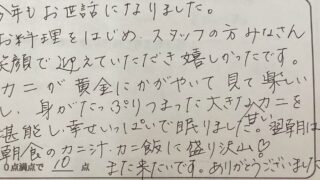 今年もお世話になりました。
お料理をはじめ、スタッフの方みなさん
笑顔で迎えていただき嬉しかったです。
カニが黄金にかがやいて見て楽しい
し、身がたっぷりつまった大きなカニを
堪能し、幸せいっぱいで眠りました。翌朝は
朝食のカニ汁、カニ飯に盛り沢山♡
0点満点で 10 点
また来たいです。ありがとうございました